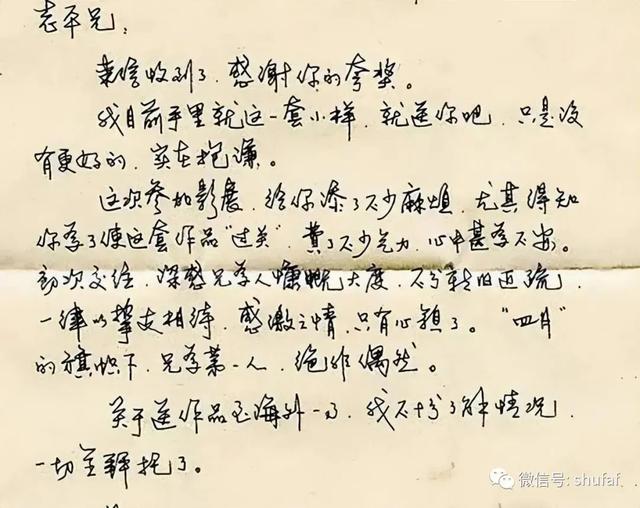 志平兄：
来信收到了，感谢你的夸奖。
我目前手里就这一套小样，就送你吧，只是没
有更好的，实在抱谦。
这次参加影展，给你添了不少麻烦，尤其得知
你为了使这套作品“过关”，费了不少气力，心中甚为不安。
初次交往，深感兄为人慷慨大度，不分新旧远疏，
一律以挚友相待，感激之情，只有心领了。“四月”
的旗帜下，兄为第一人，绝非偶然。
关于送作品至海外一事，我不十分了解情况，
一切全拜托了。
微信号: shufaf